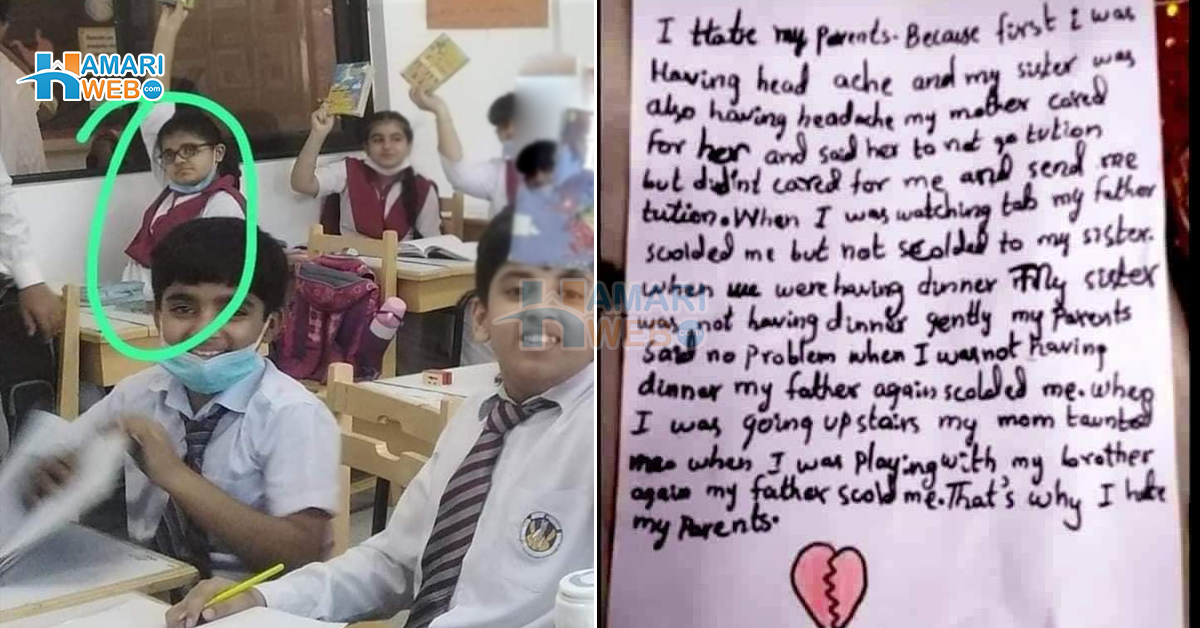 HAMARI
WEB.COM
I Hate my Parents. Because first i was
Having head ache and my sister was
also having headache my mother cared
for her and said her to not go tution
but did'nt cared for me and send me
tution. When I was watching tab my father
scolded me but not scolded to my sister.
when we were having dinner My sister
was not having dinner gently my Parents
said no problem when I was not having
dinner my father again scolded me. when
I was going upstairs my mom taunted
me when I was Playing with my brother
again my father scold me. That's why I hate
my Parents.
HAMARI
WEB